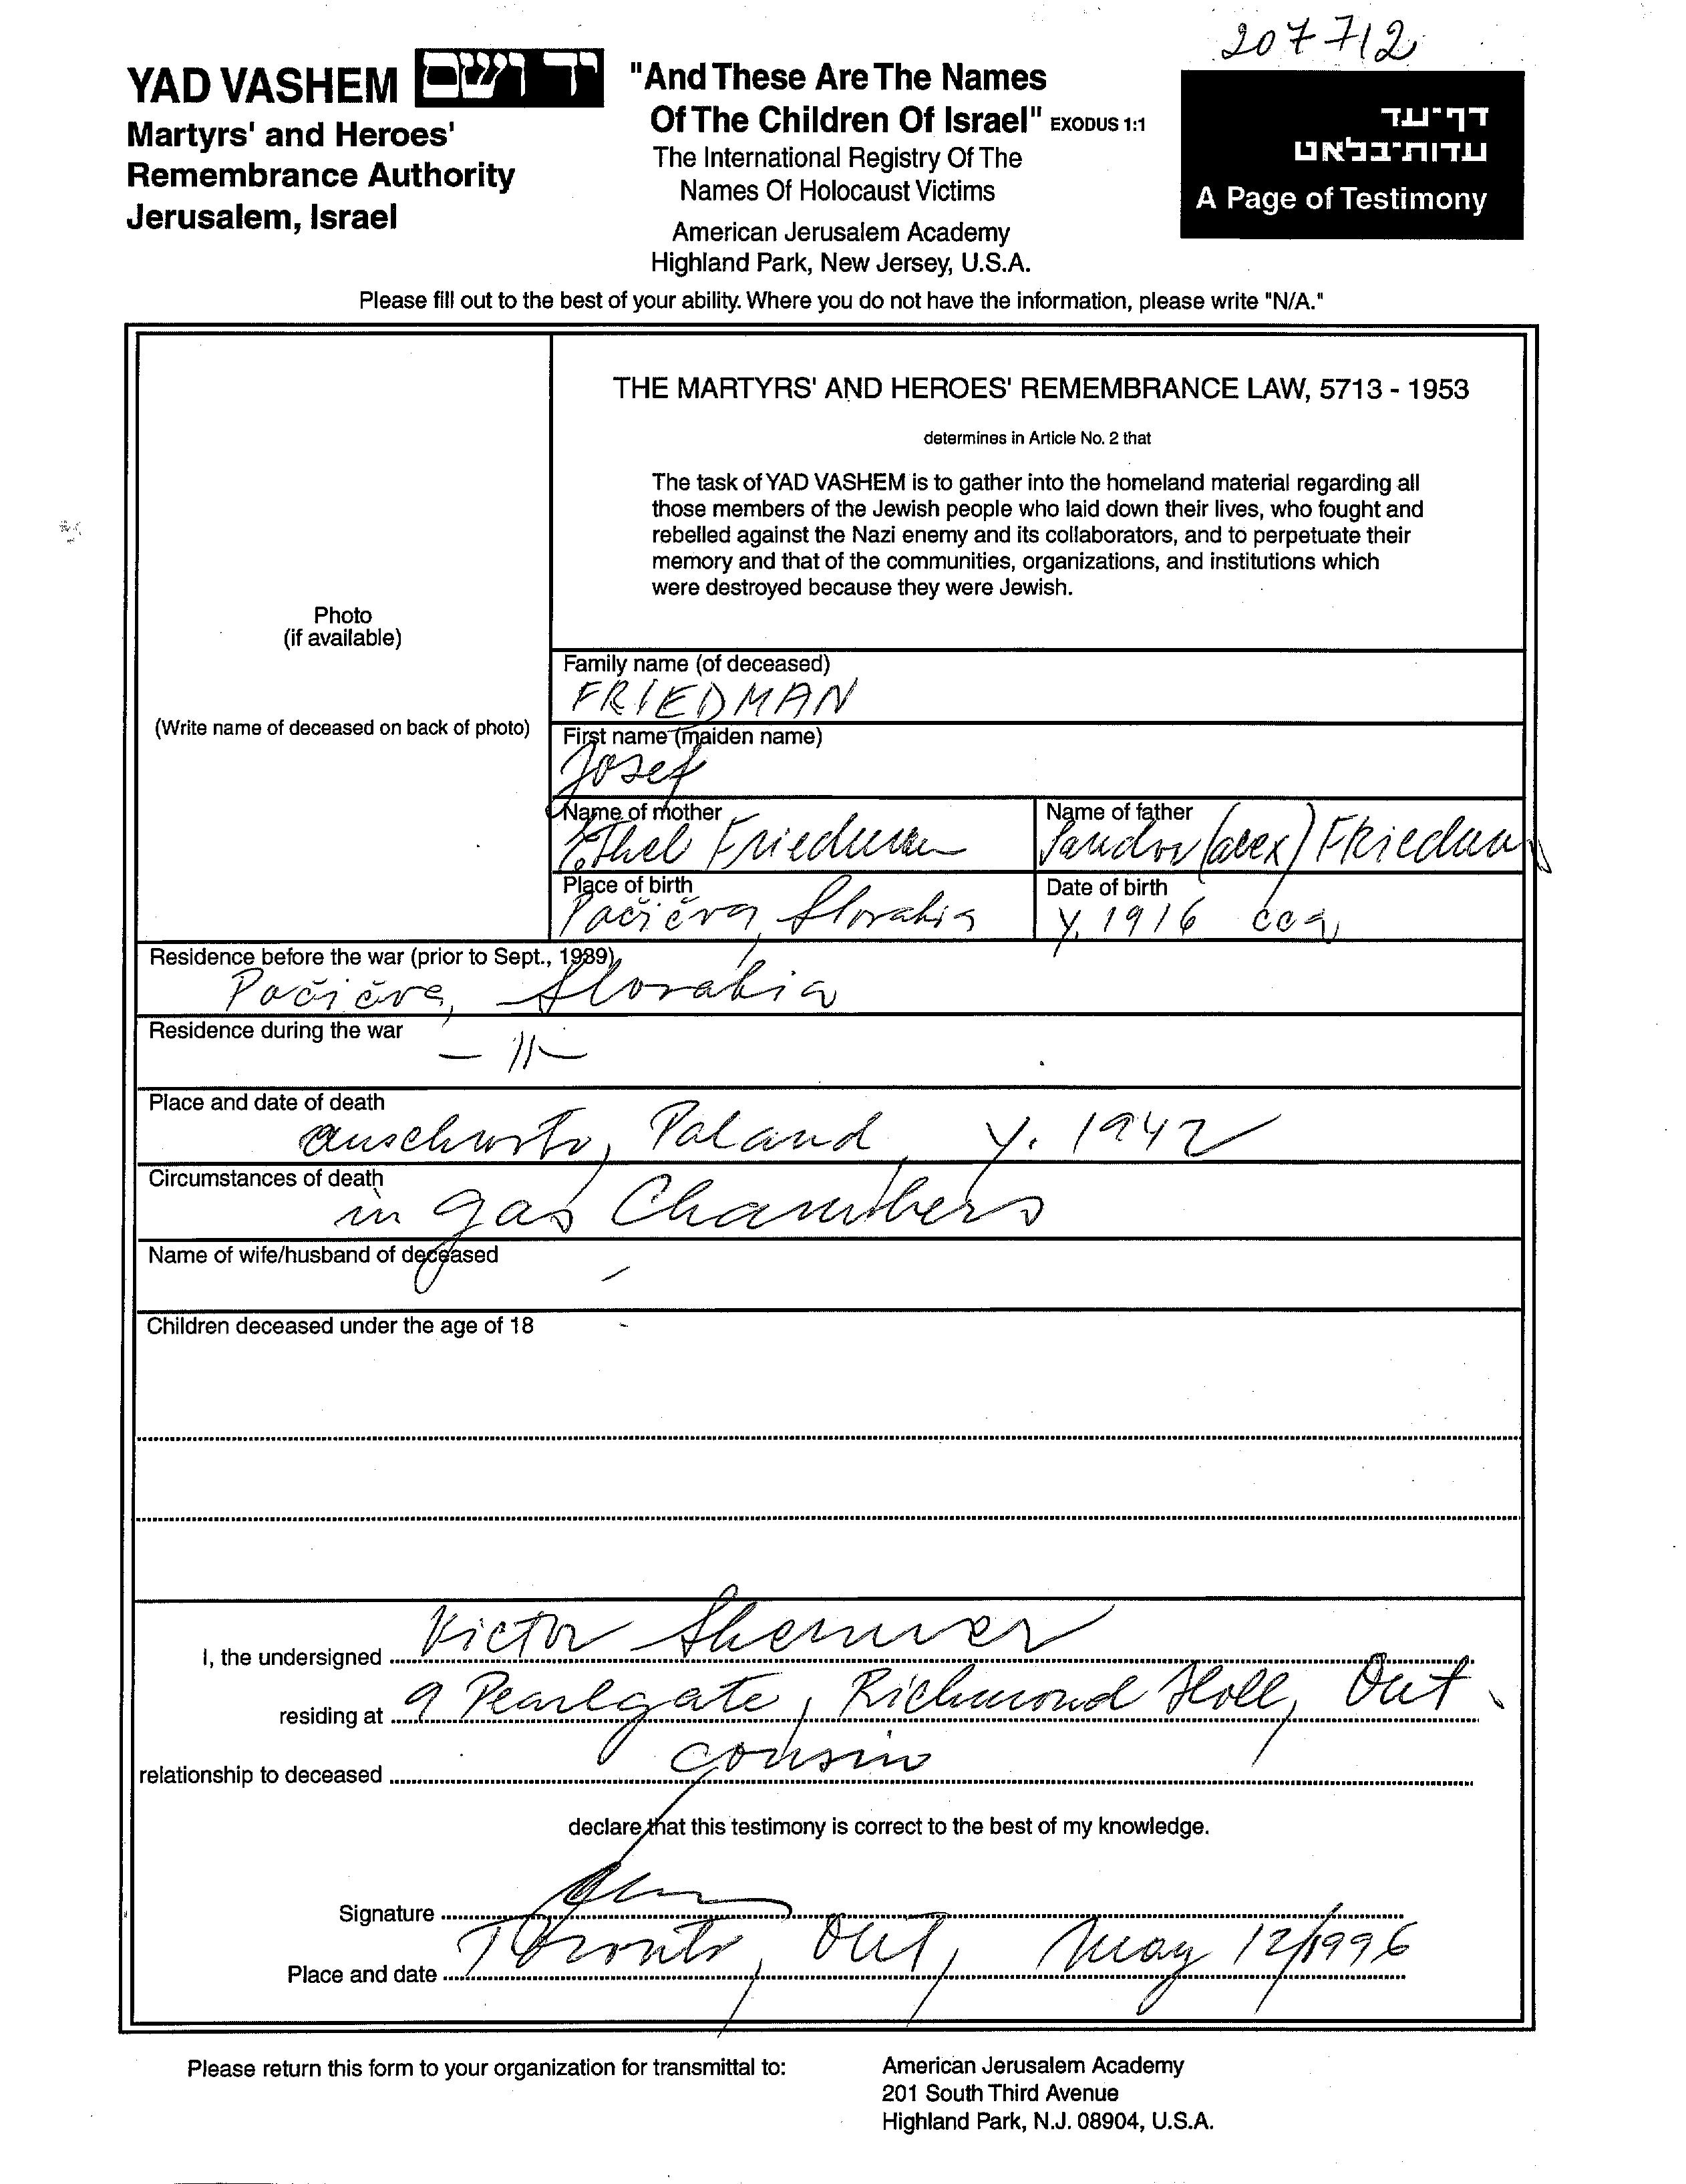 207712
YAD VASHEM יד ושם
Martyrs' and Heroes'
Remembrance Authority
Jerusalem, Israel
"And These Are The Names
Of The Children Of Israel" EXODUS 1:1
The International Registry Of The
Names Of Holocaust Victims
American Jerusalem Academy
Highland Park, New Jersey, U.S.A.
דף־עד
עדות־בלאט
A Page of Testimony
Please fill out to the best of your ability. Where you do not have the information, please write "N/A."
Photo
(if available)
(Write name of deceased on back of photo)
THE MARTYRS' AND HEROES' REMEMBRANCE LAW, 5713 - 1953
determines in Article No. 2 that
The task of YAD VASHEM is to gather into the homeland material regarding all
those members of the Jewish people who laid down their lives, who fought and
rebelled against the Nazi enemy and its collaborators, and to perpetuate their
memory and that of the communities, organizations, and institutions which
were destroyed because they were Jewish.
Family name (of deceased)
FRIEDMAN
First name (maiden name)
Josef
Name of mother
Ethel Friedman
Name of father
Sandor (alex) Friedman
Place of birth
Pačičva, Slovakia
Date of birth
y. 1916 cca
Residence before the war (prior to Sept., 1939)
Pačičva, Slovakia
Residence during the war
- 11 -
Place and date of death
Auschwitz, Poland, y. 1942
Circumstances of death
in gas Chambers
Name of wife/husband of deceased -
Children deceased under the age of 18 -
I, the undersigned Victor
residing at 9 Pearlgate, Richmond Hill, Ont.
relationship to deceased cousin
declare that this testimony is correct to the best of my knowledge.
Signature
Place and date Toronto, Ont, May 12/1996
Please return this form to your organization for transmittal to:
American Jerusalem Academy
201 South Third Avenue
Highland Park, N.J. 08904, U.S.A.